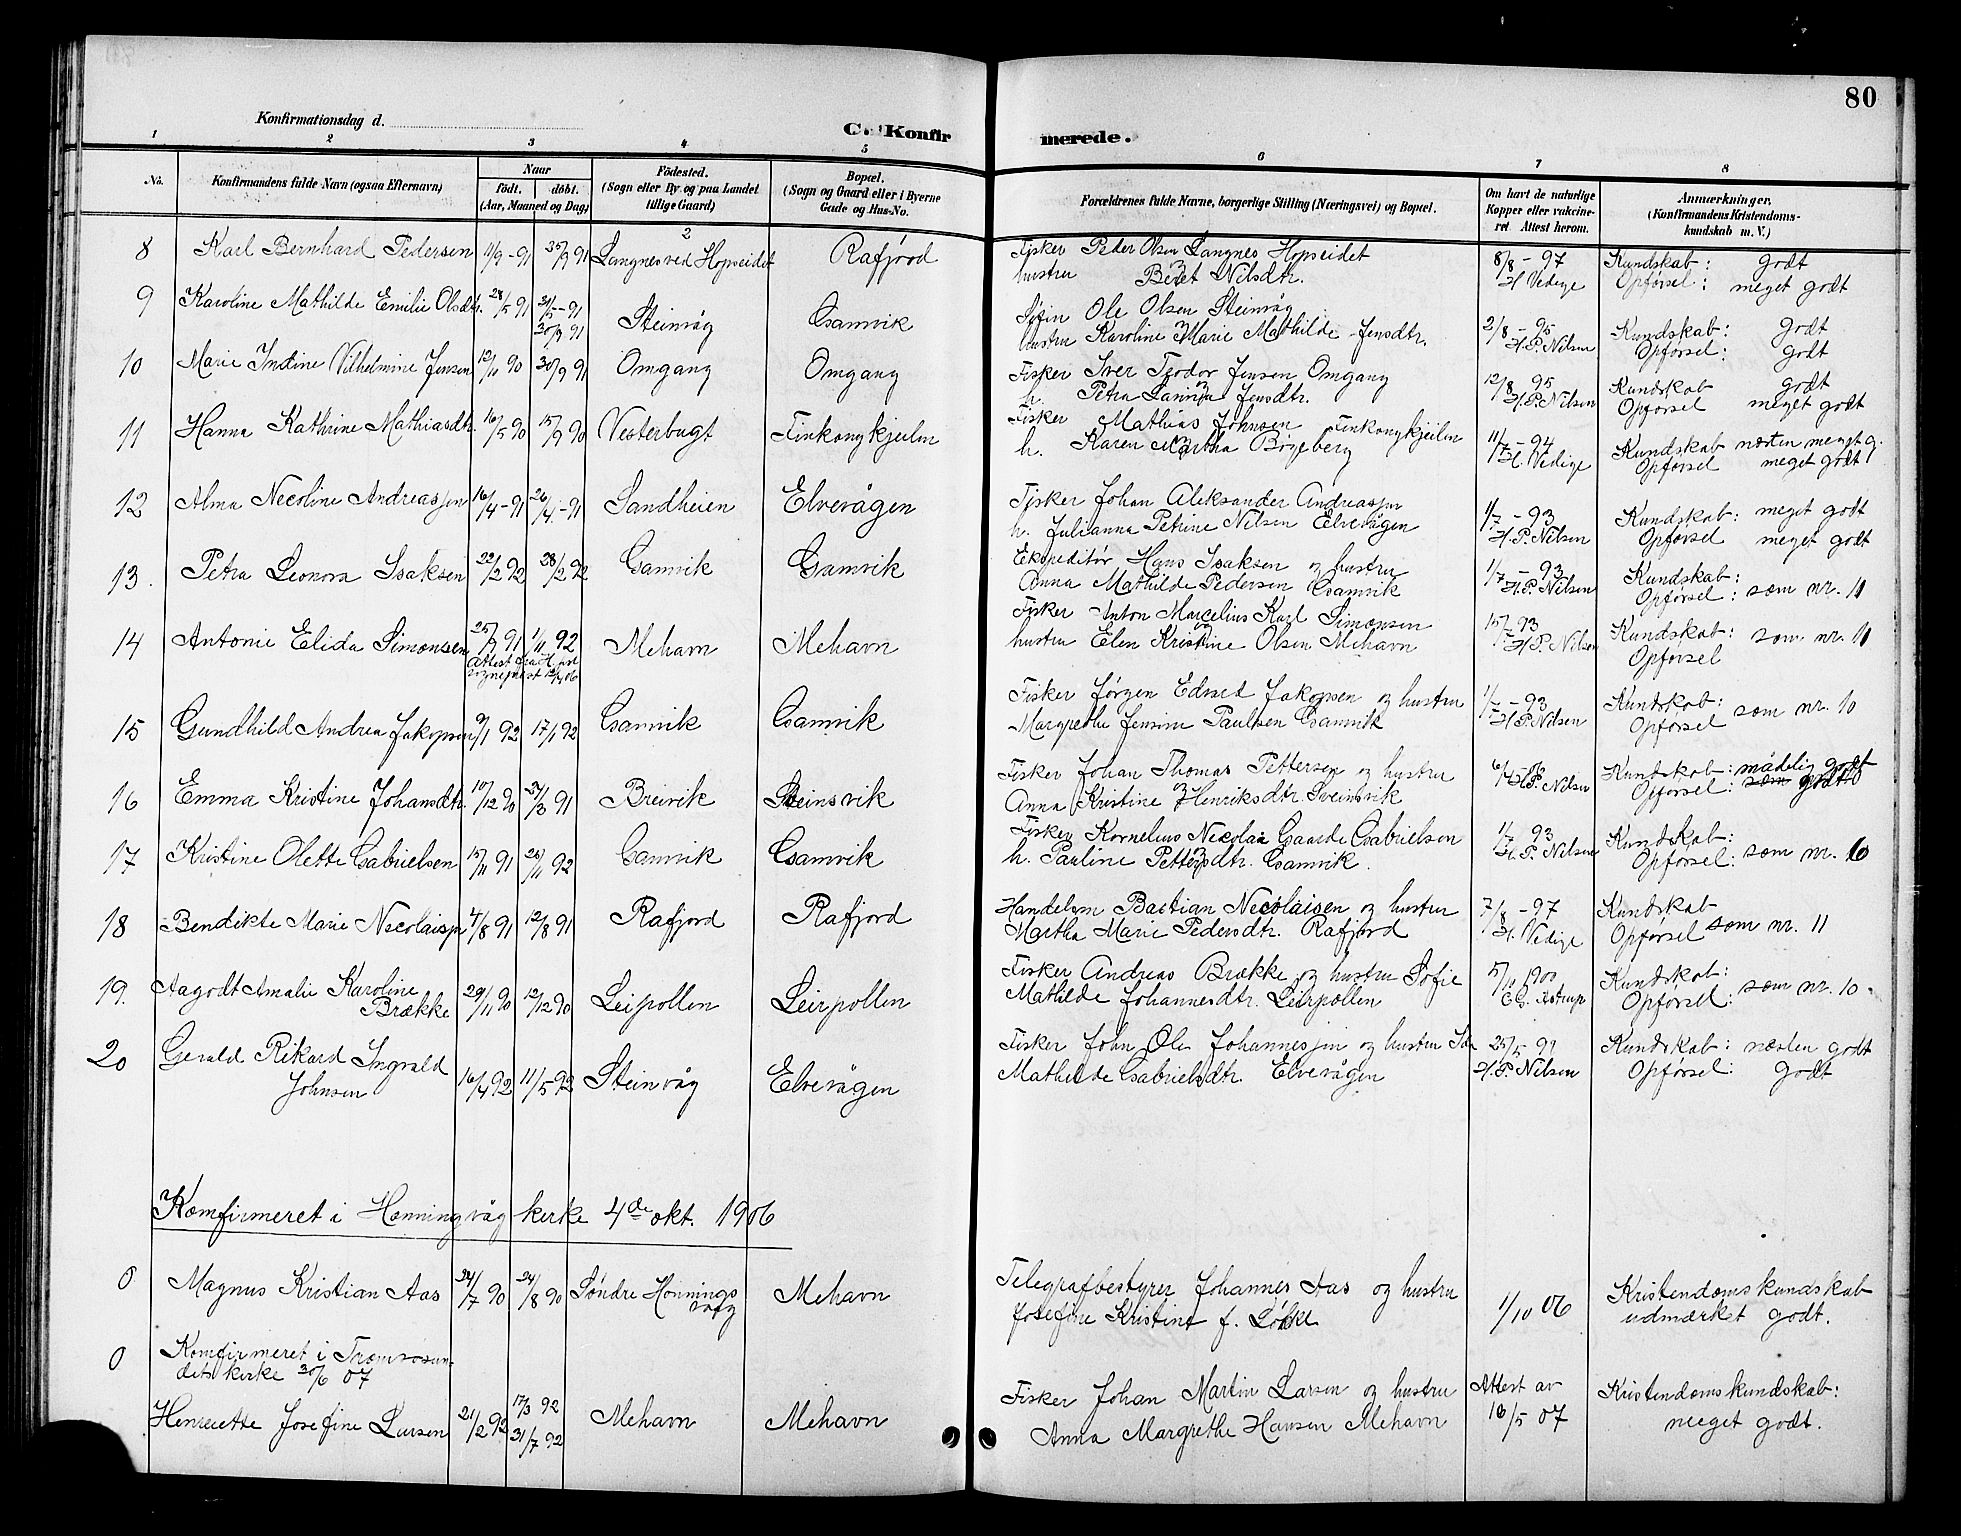 80
Konfirmationsdag d.
C. Konfirmerede.
1 2 3 4 5 6 7 8
No.
Konfirmandens fulde Navn (ogsaa Efternavn)
Naar
födt. döbt.
(Aar, Maaned og Dag)
Födested.
(Sogn eller By og paa Landet
tillige Gaard)
Bopæl.
(Sogn og Gaard eller i Byerne
Gade og Hus-No.
Forældrenes fulde Navne, borgerlige Stilling (Næringsvei) og Bopæl.
Om havt de naturlige
Kopper eller vakcine-
ret Attest herom.
Anmærkninger.
(Konfirmandens Kristendoms-
kundskab m. V.)
8 Karl Bernhard Pedersen 11/9-91 Langnes ved Hopseidet Rafjord Fisker Peder Olsen Langnes Hopseidet 8/8-97 Kundskab: godt
hustru Beret Nilsdtr. H Vedige Opførsel: meget godt
9 Karoline Mathilde Emilie Olsdtr. 28/5 91 31/5-91 30/9 91 Steinvåg Gamvik Ole Olsen Steinvåg
hustru Karoline Marie Mathilde Jensdtr. 2/8-95 H.P. Nilsen Kundskab: godt
Opførsel: godt
10 Marie Justine Vilhelmine Jensen 12/11 90 30/9 91 Omgang Omgang Fisker Iver Teodor Jensen Omgang 12/8 95 Kundskab godt
h. Petra Jensdtr. H.P. Nilsen Opførsel meget godt
11 Hanna Kathrine Mathiasdtr. 16/5 90 15/9 90 Vesterbugt Finkongkjeilen Fisker Mathias Johnsen Finkongkjeilen 11/7-94 Kundskab næsten meget g.
h. Karen Martha Bogeberg H. Vedige Opførsel meget godt
12 Alma Necoline Andreasjen 16/4-91 26/4-91 Sandheien Elvevågen Fisker Johan Aleksander Andreasjen 1/7-93 Kundskab: meget godt
h. Julianna Petrine Nilsen Elvevågen H.P. Nilsen Opførsel meget godt
13. Petra Leonora Isaksen 22/2 92 28/2 92 Gamvik Gamvik Ekspeditør Hans Isaksen og hustru 1/7-93 Kundskab:
Anna Mathilde Pedersen Gamvik H.P. Nilsen Opførsel: som nr. 11
14 Antonie Elida Simonsen 25/9 91 1/11 92 Mehavn Mehavn Fisker Anton Marcelius Karl Simonsen 15/7 93 Kundskab: som nr. 11
hustru Elen Kristine Olsen Mehavn H.P. Nilsen Opførsel
15 Gundhild Andrea Jakopsen 9/1 92 17/1 92 Gamvik Gamvik Fisker Jørgen Edvard Jakopsen og hustru 1/7-93 Kundskab: som nr. 10
Margrethe Jensine Paulsen Gamvik H.P. Nilsen Opførsel
16 Emma Kristine Johansdtr. 10/12 90 Breivik Steinsvik Fisker Johan Thomas Pettersen og hustru Kundskab: mådelig godt
Anna Kristine Henriksdtr. Sveinsvik H.P. Nilsen Opførsel: som godt
17 Kristine Olette Gabrielsen 15/11 91 Gamvik Gamvik Fisker Kornelius Necolai Gaarde Gabrielsen 1/7 93 Kundskab:
h. Pauline Pettersdtr. Gamvik. H.P. Nilsen Opførsel: som nr. 10
18 Bendikte Marie Necolaisjn 4/8 91 12/8 91 Rafjord Rafjord Handelsm Bastian Necolaisen og hustru 7/8-97 Kundskab
Martha Marie Pedersdtr. Rafjord H. Vedige Opførsel som nr. 11
19. Aagodt Amalie Karoline
Brække 29/11 90 12/12 90 Leirpollen Leirpollen Fisker Andreas Brække og hustru Sofie 5/11 1900 Kundskab:
Mathilde Johannesdtr. Leirpollen Astrup Opførsel: som nr. 10.
20 Gerald Rikard Ingvald
Johnsen 16/4 92 11/5 92 Steinvåg Elvevågen Fisker John Ole Johannesjen og hustru Ida 25/5-99 Kundskab: næsten godt
Mathilde Gabrielsdtr. Elvevågen H.P. Nilsen Opførsel: godt
Komfirmeret i Honningvåg kirke 4de okt. 1906
0 Magnus Kristian Aas 24/7 90 24/8 90 Søndre Honnings
våg Mehavn Telegrafbestyrer Johannes Aas og hustru
Josefine Kristine f. Løkke 1/10 06 Kristendomskundskab
udmærket godt.
0 Komfirmeret i Tromsøsun-
dets kirke 30/6 07
Henriette Josefine Larsen 21/2 92 17/3 92 31/7 92 Mehavn Mehavn Fisker Johan Martin Larsen og hustru
Anna Margrethe Hansen Mehavn Attest av
16/5 07 Kristendomskundskab:
meget godt.